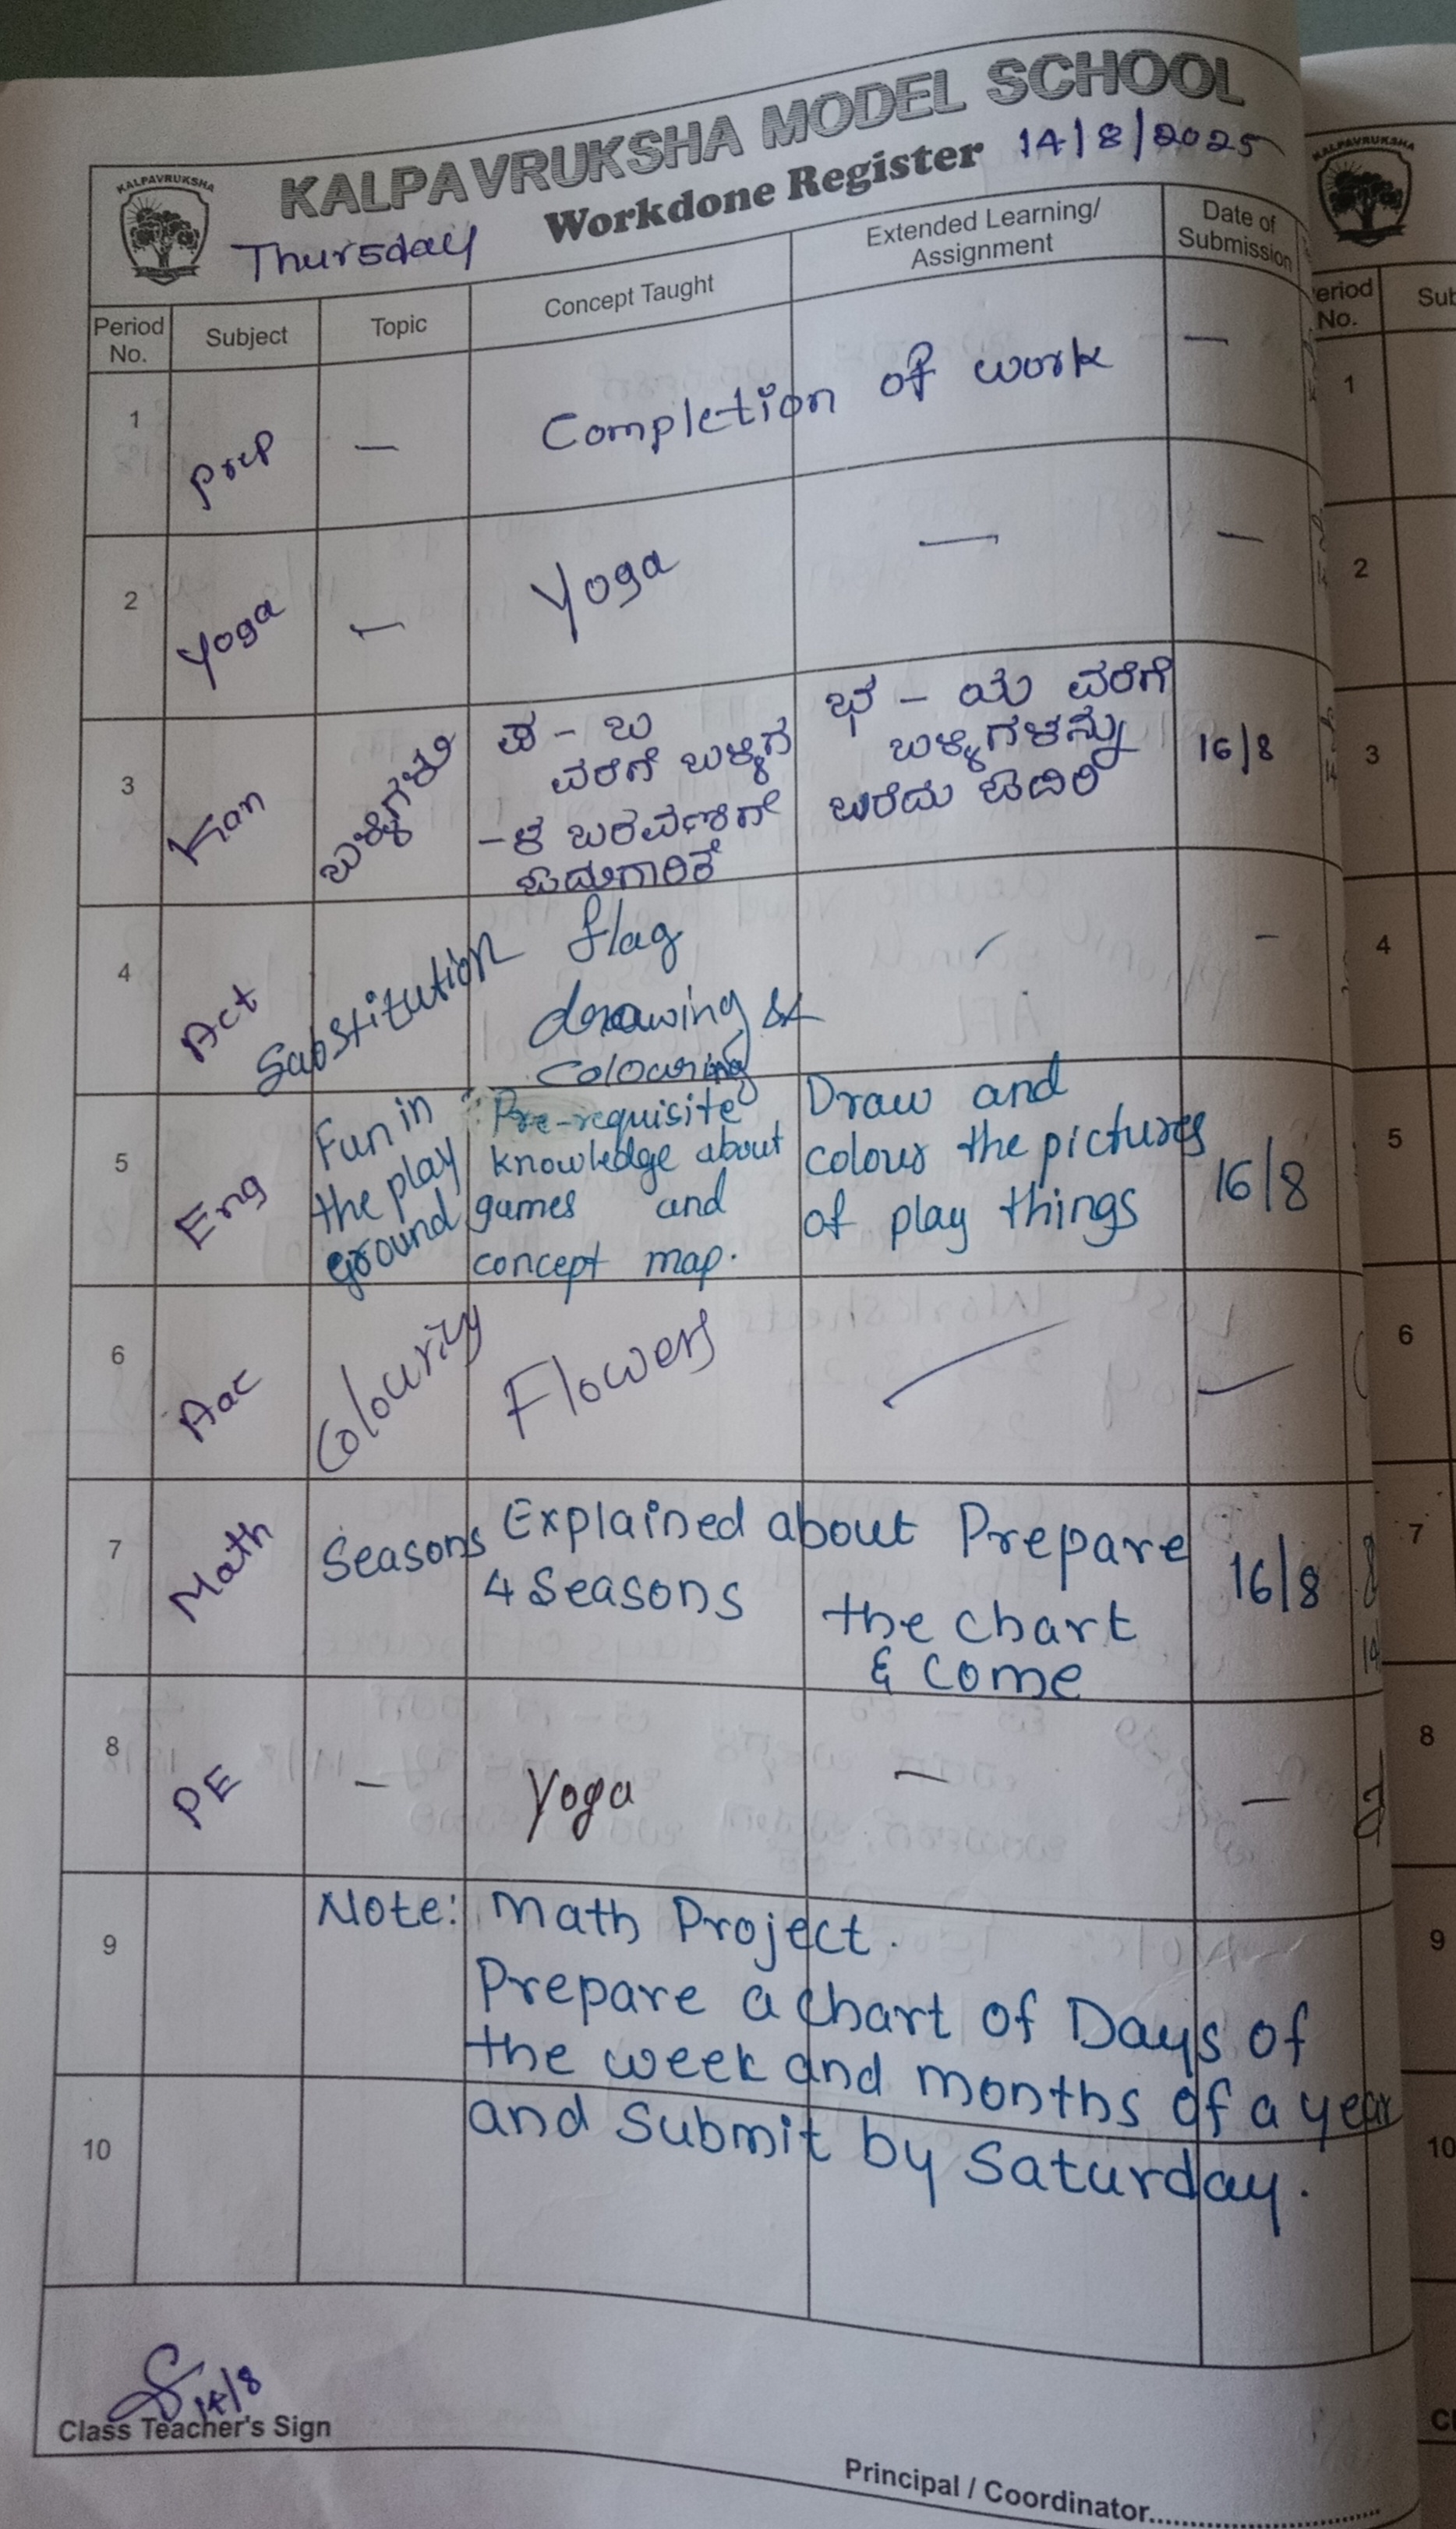 KALPAVRUKSHA MODEL SCHOOL
KALPAVRUKSHA
Workdone Register 14/8/2025
Thursday
Period No.
Subject
Topic
Concept Taught
Extended Learning/ Assignment
Date of Submission
1
Prep
—
Completion of work
—
2
Yoga
—
Yoga
—
—
3
Kan
ಬಳ್ಳಿಗಳು
ಪ - ಬ
ವರೆಗೆ ಬಳ್ಳಿಗ
-ಳ ಬರವಣಿಗೆ
ಓದುಗಾರಿಕೆ
ಭ - ಯ ವರೆಗೆ
ಬಳ್ಳಿಗಳನ್ನು
ಬರೆದು ಓದಿರಿ
16/8
4
Act
Substitution
flag
drawing &
colouring
-
5
Eng
Fun in
the play
ground
Pre-requisite
knowledge about
games and
concept map.
Draw and
colour the pictures
of play things
16/8
6
Aac
Colouring
Flowers
7
Math
Seasons
Explained about
4 Seasons
Prepare
the chart
& come
16/8
8
PE
—
Yoga
—
—
9
Note: Math Project.
Prepare a chart of Days of
the week and months of a year
10
and Submit by Saturday.
14/8
Class Teacher's Sign
Principal / Coordinator
KALPAVRUKSHA
eriod No.
Sub
1
2
3
4
5
6
7
8
9
10